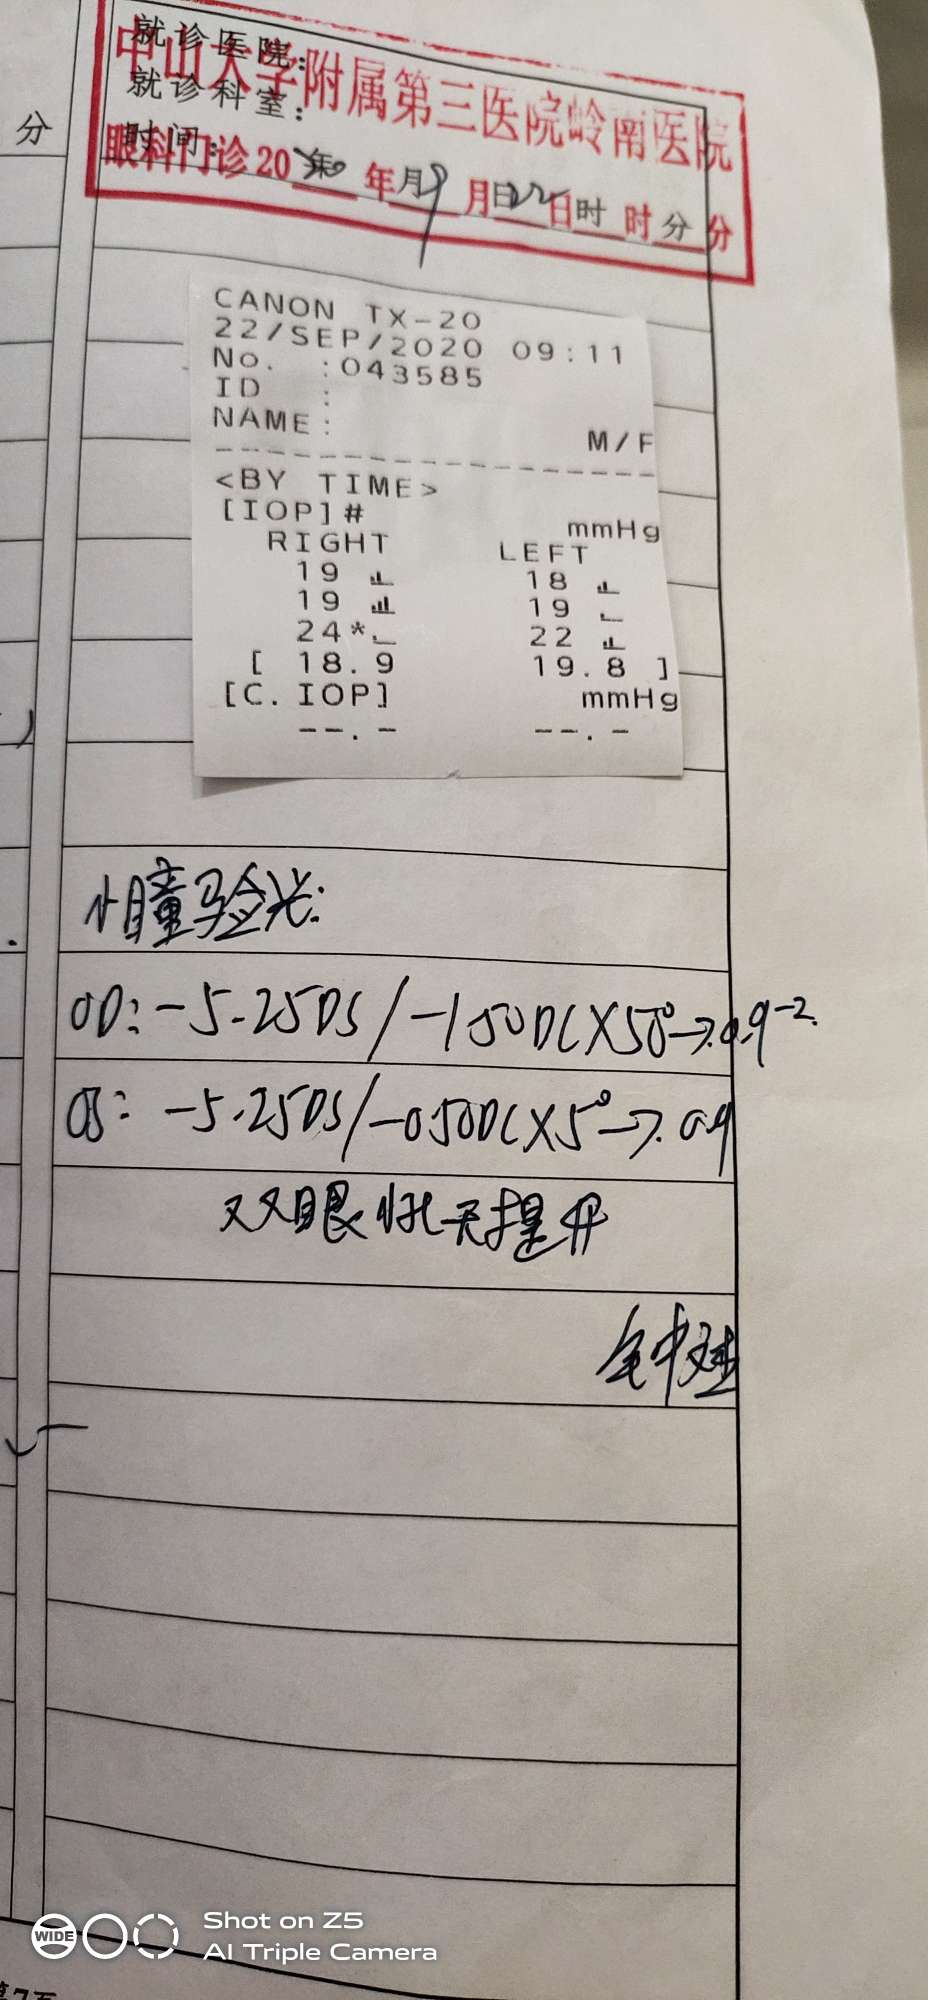 分
就诊医院:
中山大学附属第三医院岭南医院
就诊科室:
时间:
眼科门诊20 20 年 9 月 22 日 时 分
年 月 日 时 分
CANON TX-20
22/SEP/2020 09:11
No. :043585
ID :
NAME:
M/F
<BY TIME>
[IOP]# mmHg
RIGHT LEFT
19 18
19 19
24* 22
[ 18.9 19.8 ]
[C. IOP] mmHg
--.- --.-
小瞳验光:
OD: -5.25DS/-1.50DC×50°→0.9-2.
OS: -5.25DS/-0.50DC×5°→0.9
双眼 无提升
第7页
WIDE
Shot on Z5
AI Triple Camera